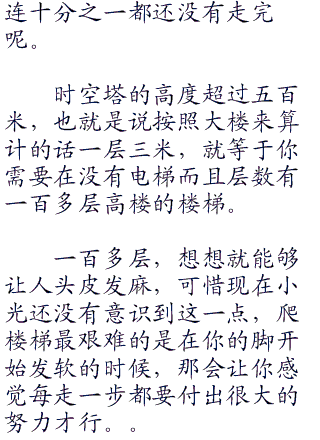 连十分之一都还没有走完
呢。
时空塔的高度超过五百
米，也就是说按照大楼来算
计的话一层三米，就等于你
需要在没有电梯而且层数有
一百多层高楼的楼梯。
一百多层，想想就能够
让人头皮发麻，可惜现在小
光还没有意识到这一点，爬
楼梯最艰难的是在你的脚开
始发软的时候，那会让你感
觉每走一步都要付出很大的
努力才行。。